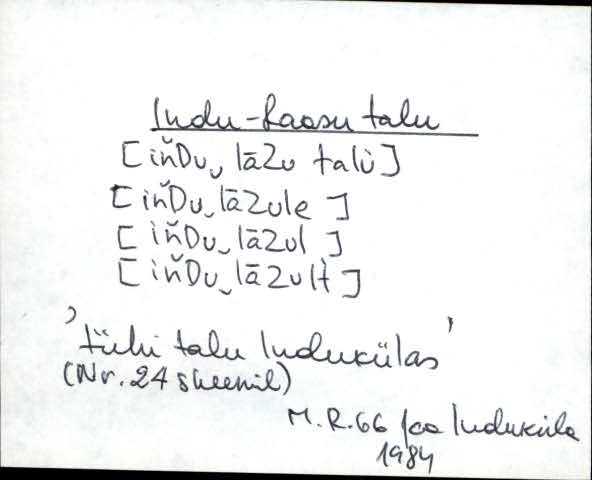 Indu-Laasu talu
[iňDu‿lāZu talù]
[iňDu‿lāZule]
[iňDu‿lāZul]
[iňDu‿lāZult]
'tühi talu Indukülas'
(Nr. 24 skeemil)
M.R. 66 Induküla
1984